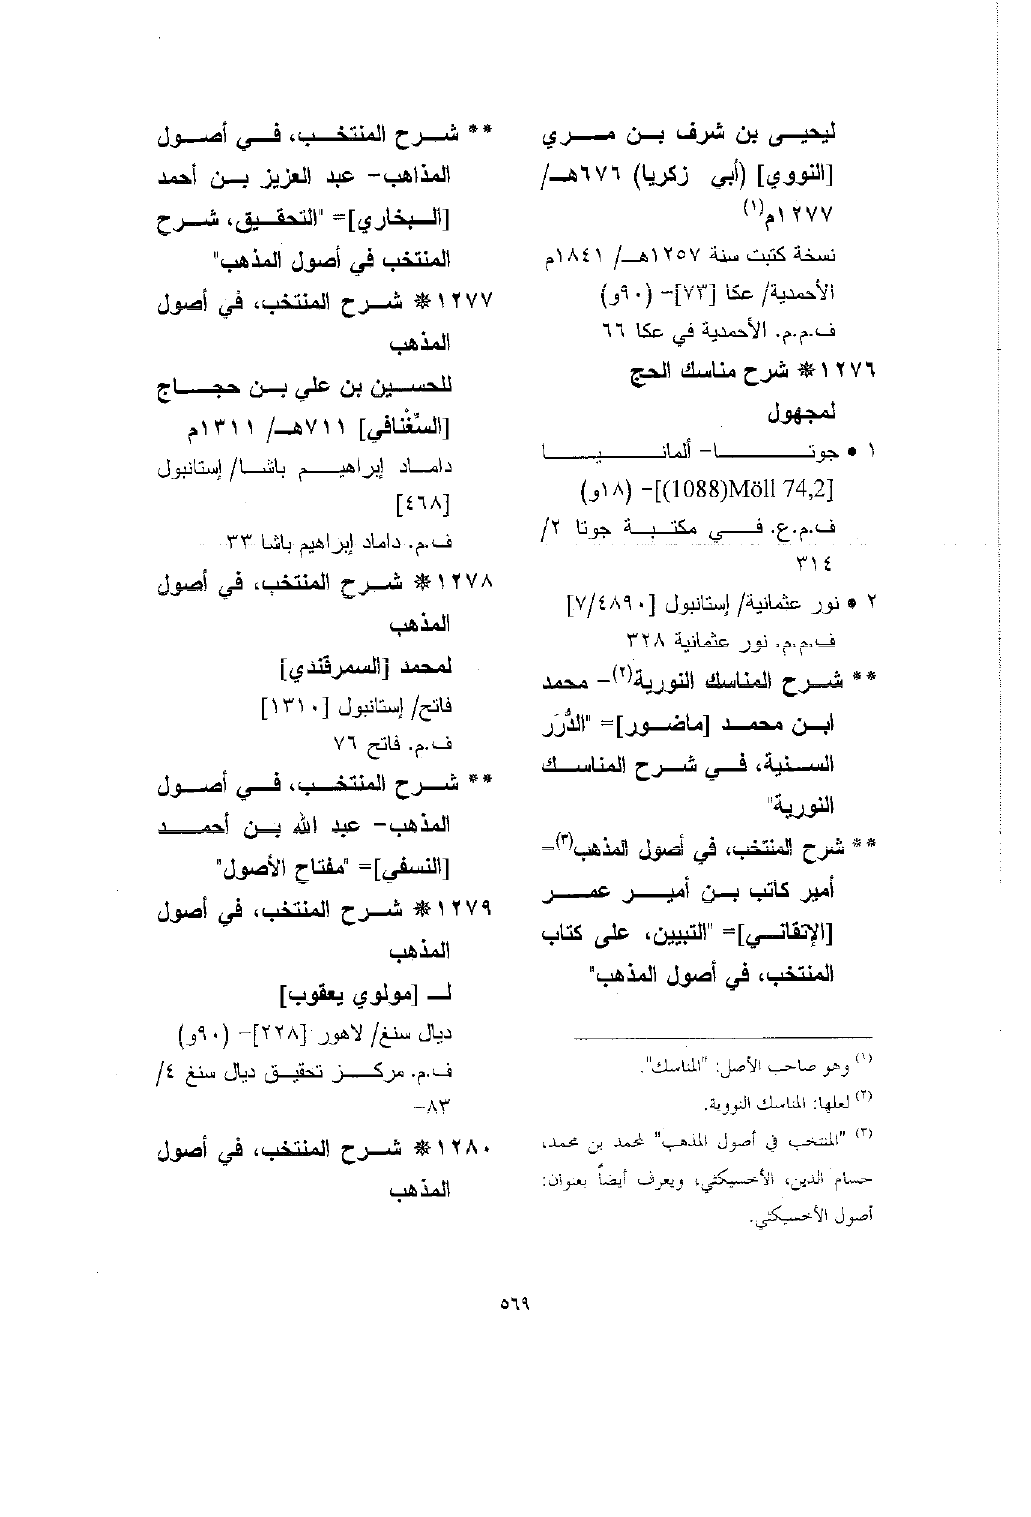 ليحيى بن شرف بن مري
[النووي] (أبي زكريا) ٦٧٦هـ/
١٢٧٧م(١)
نسخة كتبت سنة ١٢٥٧هـ/ ١٨٤١م
الأحمدية/ عكا [٧٣]- (٩٠و)
ف.م.م. الأحمدية في عكا ٦٦
١٢٧٦ * شرح مناسك الحج
لمجهول
١ • جوتا- ألمانيا
[(1088)Möll 74,2]- (١٨و)
ف.م.ع. في مكتبة جوتا ٢/
٣١٤
٢ • نور عثمانية/ إستانبول [٧/٤٨٩٠]
ف.م.م. نور عثمانية ٣٢٨
** شرح المناسك النورية(٢)- محمد
ابن محمد [ماضور]= "الدُّرَر
السنية، في شرح المناسك
النورية"
** شرح المنتخب، في أصول المذهب(٣)=
أمير كاتب بن أمير عمر
[الإتقاني]= "التبيين، على كتاب
المنتخب، في أصول المذهب"
(١) وهو صاحب الأصل: "المناسك".
(٢) لعلها: المناسك النووية.
(٣) "المنتخب في أصول المذهب" لمحمد بن محمد،
حسام الدين، الأخسيكثي، ويعرف أيضاً بعنوان:
أصول الأخسيكثي.
** شرح المنتخب، في أصول
المذاهب- عبد العزيز بن أحمد
[البخاري]= "التحقيق، شرح
المنتخب في أصول المذهب"
١٢٧٧ * شرح المنتخب، في أصول
المذهب
للحسين بن علي بن حجاج
[السِّغْنافي] ٧١١هـ/ ١٣١١م
داماد إبراهيم باشا/ إستانبول
[٤٦٨]
ف.م. داماد إبراهيم باشا ٣٣
١٢٧٨ * شرح المنتخب، في أصول
المذهب
لمحمد [السمرقندي]
فاتح/ إستانبول [١٣١٠]
ف.م. فاتح ٧٦
** شرح المنتخب، في أصول
المذهب- عبد الله بن أحمد
[النسفي]= "مفتاح الأصول"
١٢٧٩ * شرح المنتخب، في أصول
المذهب
لـ [مولوي يعقوب]
ديال سنغ/ لاهور [٢٢٨]- (٩٠و)
ف.م. مركز تحقيق ديال سنغ ٤/
٨٣-
١٢٨٠ * شرح المنتخب، في أصول
المذهب
٥٦٩